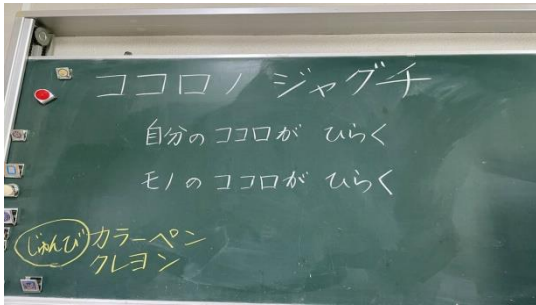 ココロノ ジャグチ
自分のココロが ひらく
モノのココロが ひらく
じゅんび カラーペン
クレヨン